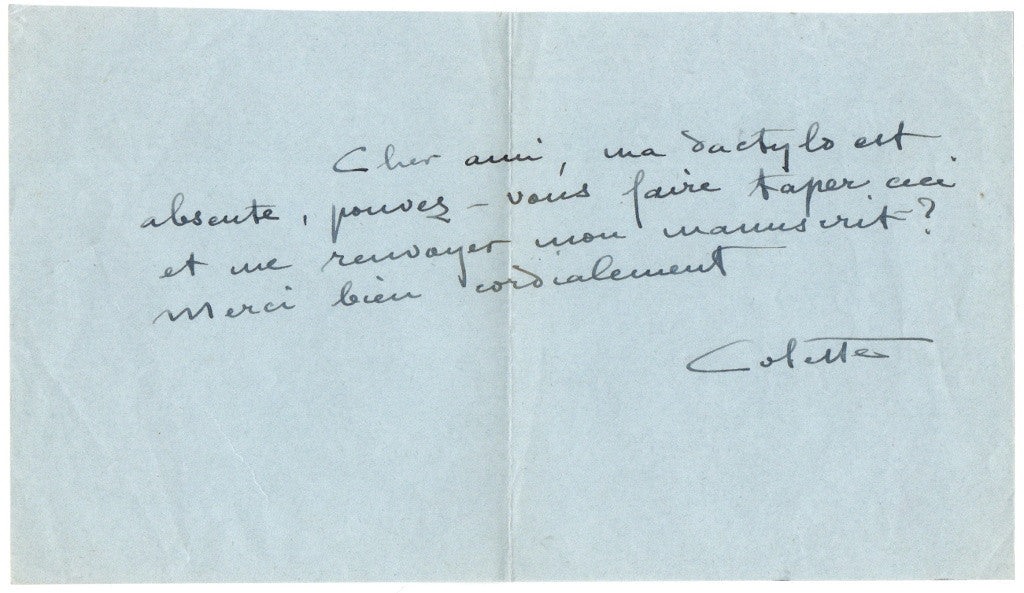 Cher ami, ma dactylo est
absente, pouvez-vous faire taper ceci
et me renvoyer mon manuscrit?
Merci bien cordialement
Colette